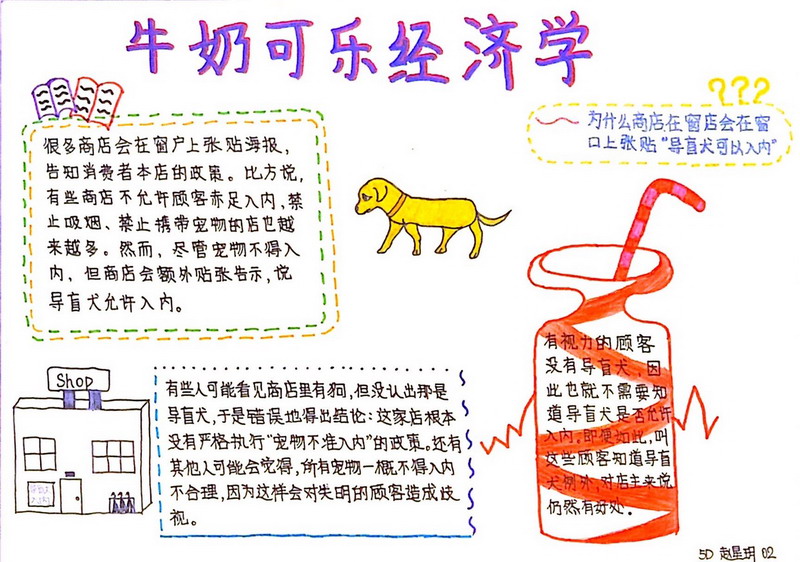 牛奶可乐经济学
???
为什么商店在窗店会在窗
口上张贴“导盲犬可以入内”
很多商店会在窗户上张贴海报,
告知消费者本店的政策。比方说,
有些商店不允许顾客赤足入内,禁
止吸烟、禁止携带宠物的店也越
来越多。然而,尽管宠物不得入
内,但商店会额外贴张告示,说
导盲犬允许入内。
有视力的顾客
没有导盲犬,因
此也就不需要知
道导盲犬是否允许
入内。即便如此,叫
这些顾客知道导盲
犬例外,对店主来说
仍然有好处。
Shop
有些人可能看见商店里有狗,但没认出那是
导盲犬,于是错误地得出结论:这家店根本
没有严格执行“宠物不准入内”的政策。还有
其他人可能会觉得,所有宠物一概不得入内
不合理,因为这样会对失明的顾客造成歧
视。
5D 赵星玥 02